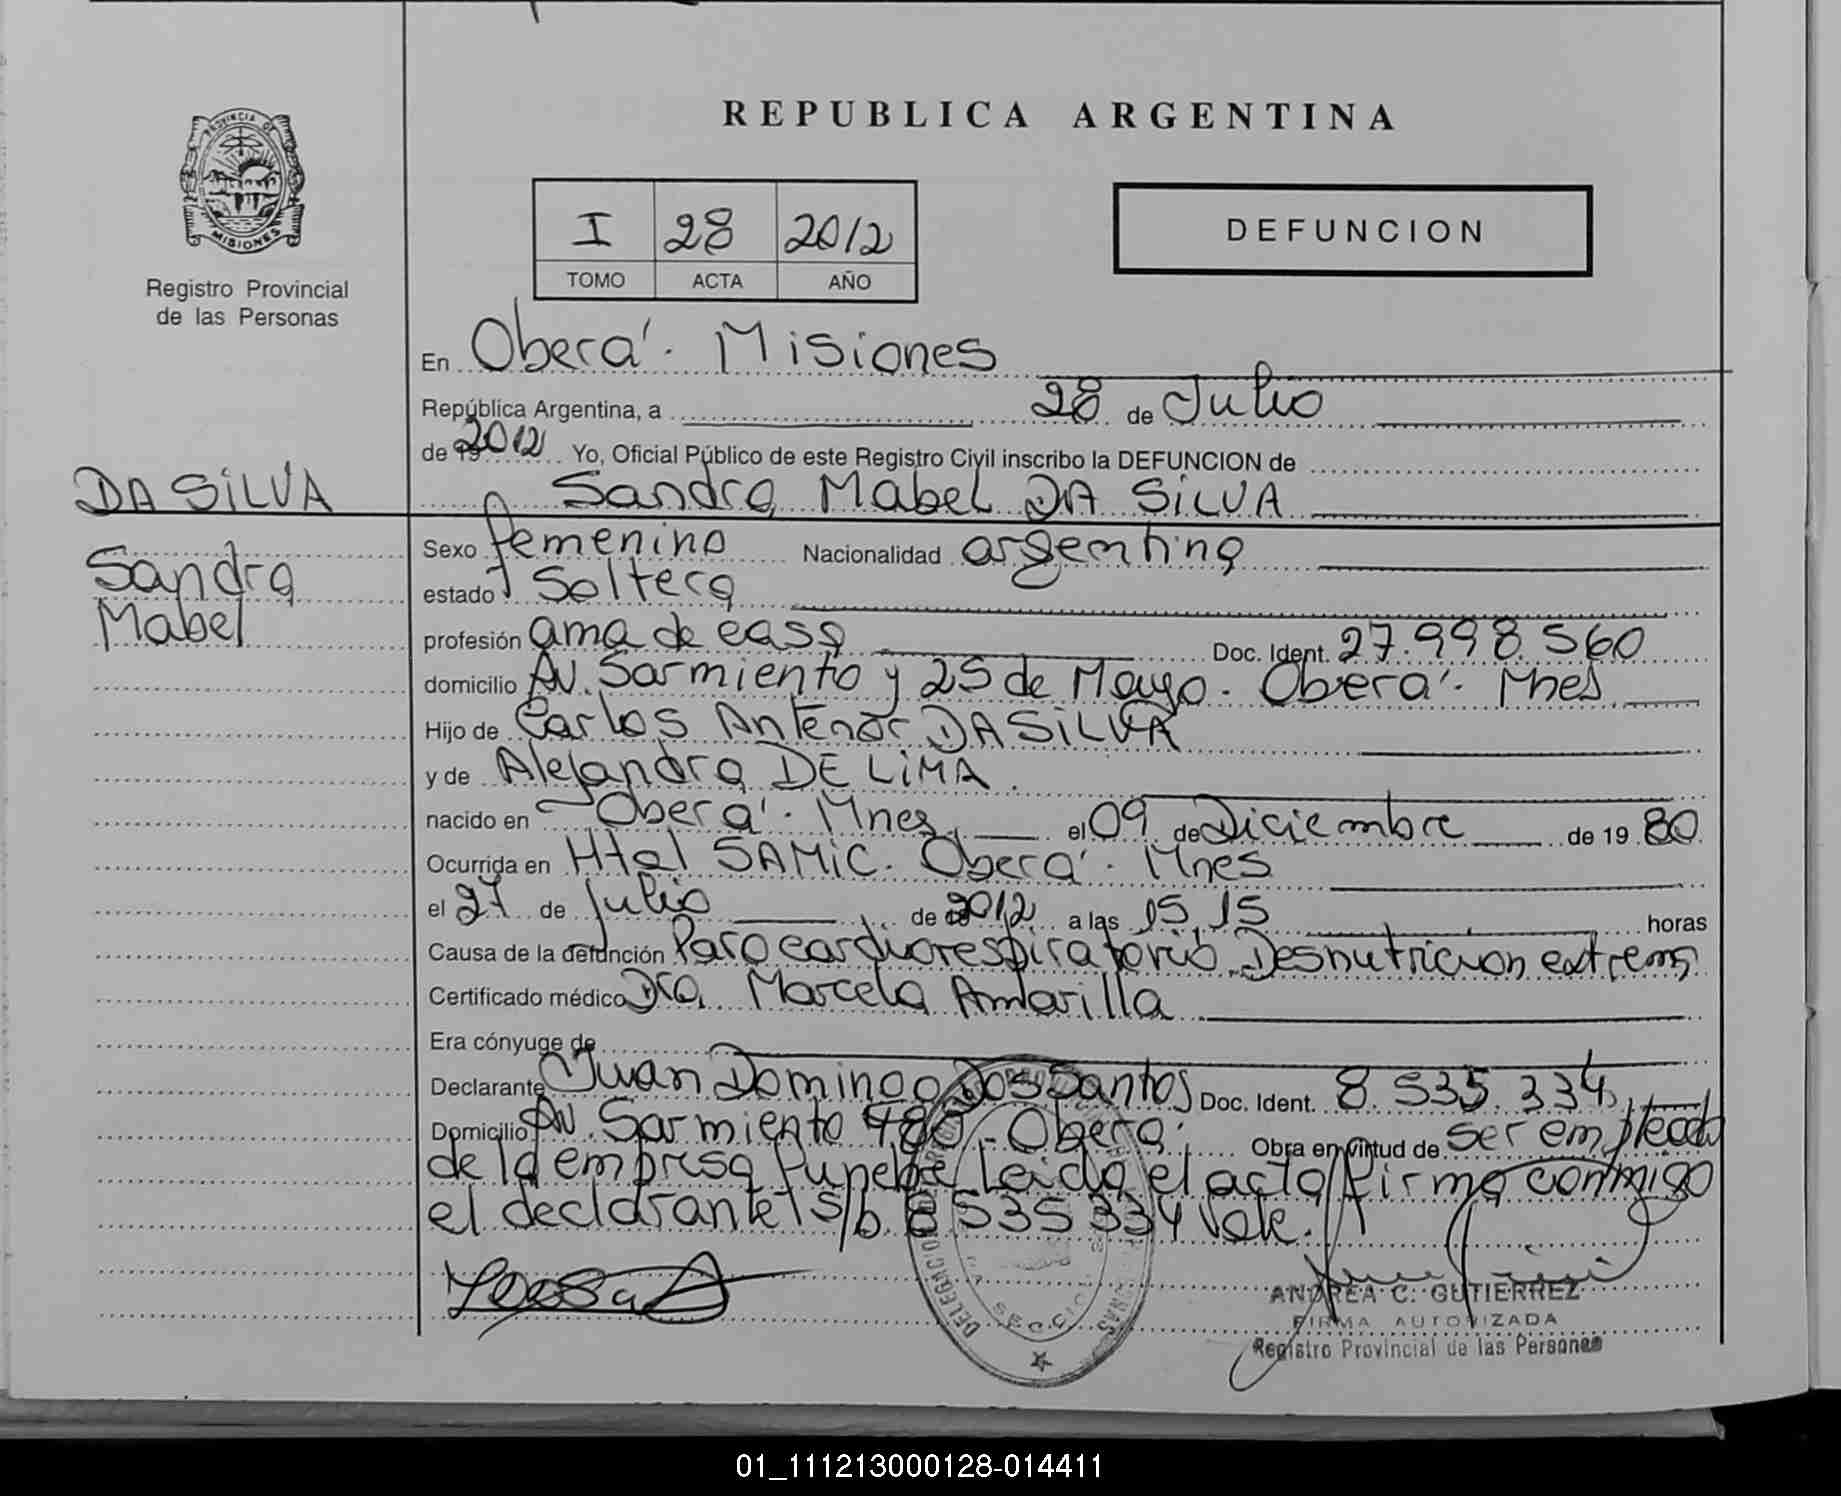 REPUBLICA ARGENTINA
PROVINCIA DE
MISIONES
Registro Provincial
de las Personas
I 28 2012
TOMO ACTA AÑO
DEFUNCION
En Oberá. Misiones
República Argentina, a 28 de Julio
de 2012 Yo, Oficial Público de este Registro Civil inscribo la DEFUNCION de
Sandra Mabel DA SILVA
DA SILVA
Sandra
Mabel
Sexo femenino Nacionalidad argentina
estado Soltera
profesión ama de casa Doc. Ident. 27.998.560
domicilio Av. Sarmiento y 25 de Mayo. Oberá. Mnes
Hijo de Carlos Antenor DA SILVA
y de Alejandra DE LIMA
nacido en Oberá. Mnes. el 09 de Diciembre de 19 80
Ocurrida en Htal SAMIC. Oberá. Mnes
el 27 de Julio de 2012 a las 15,15 horas
Causa de la defunción Paro cardiorespiratorio Desnutricion extrema
Certificado médico Dra. Marcela Amarilla
Era cónyuge de
Declarante Juan Domingo Dos Santos Doc. Ident. 8.535.334
Domicilio Av. Sarmiento 480. Oberá. Obra en virtud de ser empleado
de la empresa funebre Leida el acta firma conmigo
el declarante s/b 8535334 Vale.
ANDREA C. GUTIERREZ
FIRMA AUTORIZADA
Registro Provincial de las Personas
01_111213000128-014411